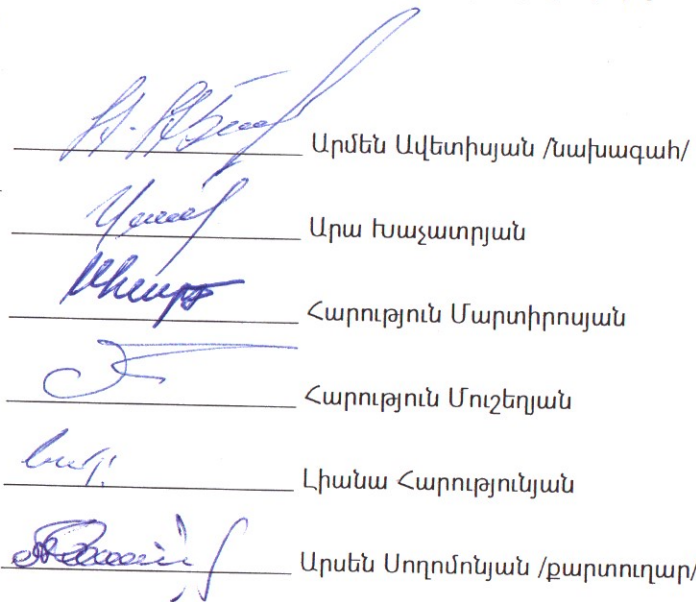 Արմեն Ավետիսյան /նախագահ/
Արա Խաչատրյան
Հարություն Մարտիրոսյան
Հարություն Մուշեղյան
Լիանա Հարությունյան
Արսեն Սողոմոնյան /քարտուղար/